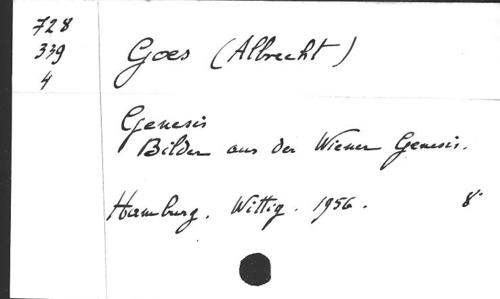 728
339
4
Goes (Albrecht)
Genesis
Bilder aus der Wiener Genesis.
Hamburg. Wittig. 1956. 8°